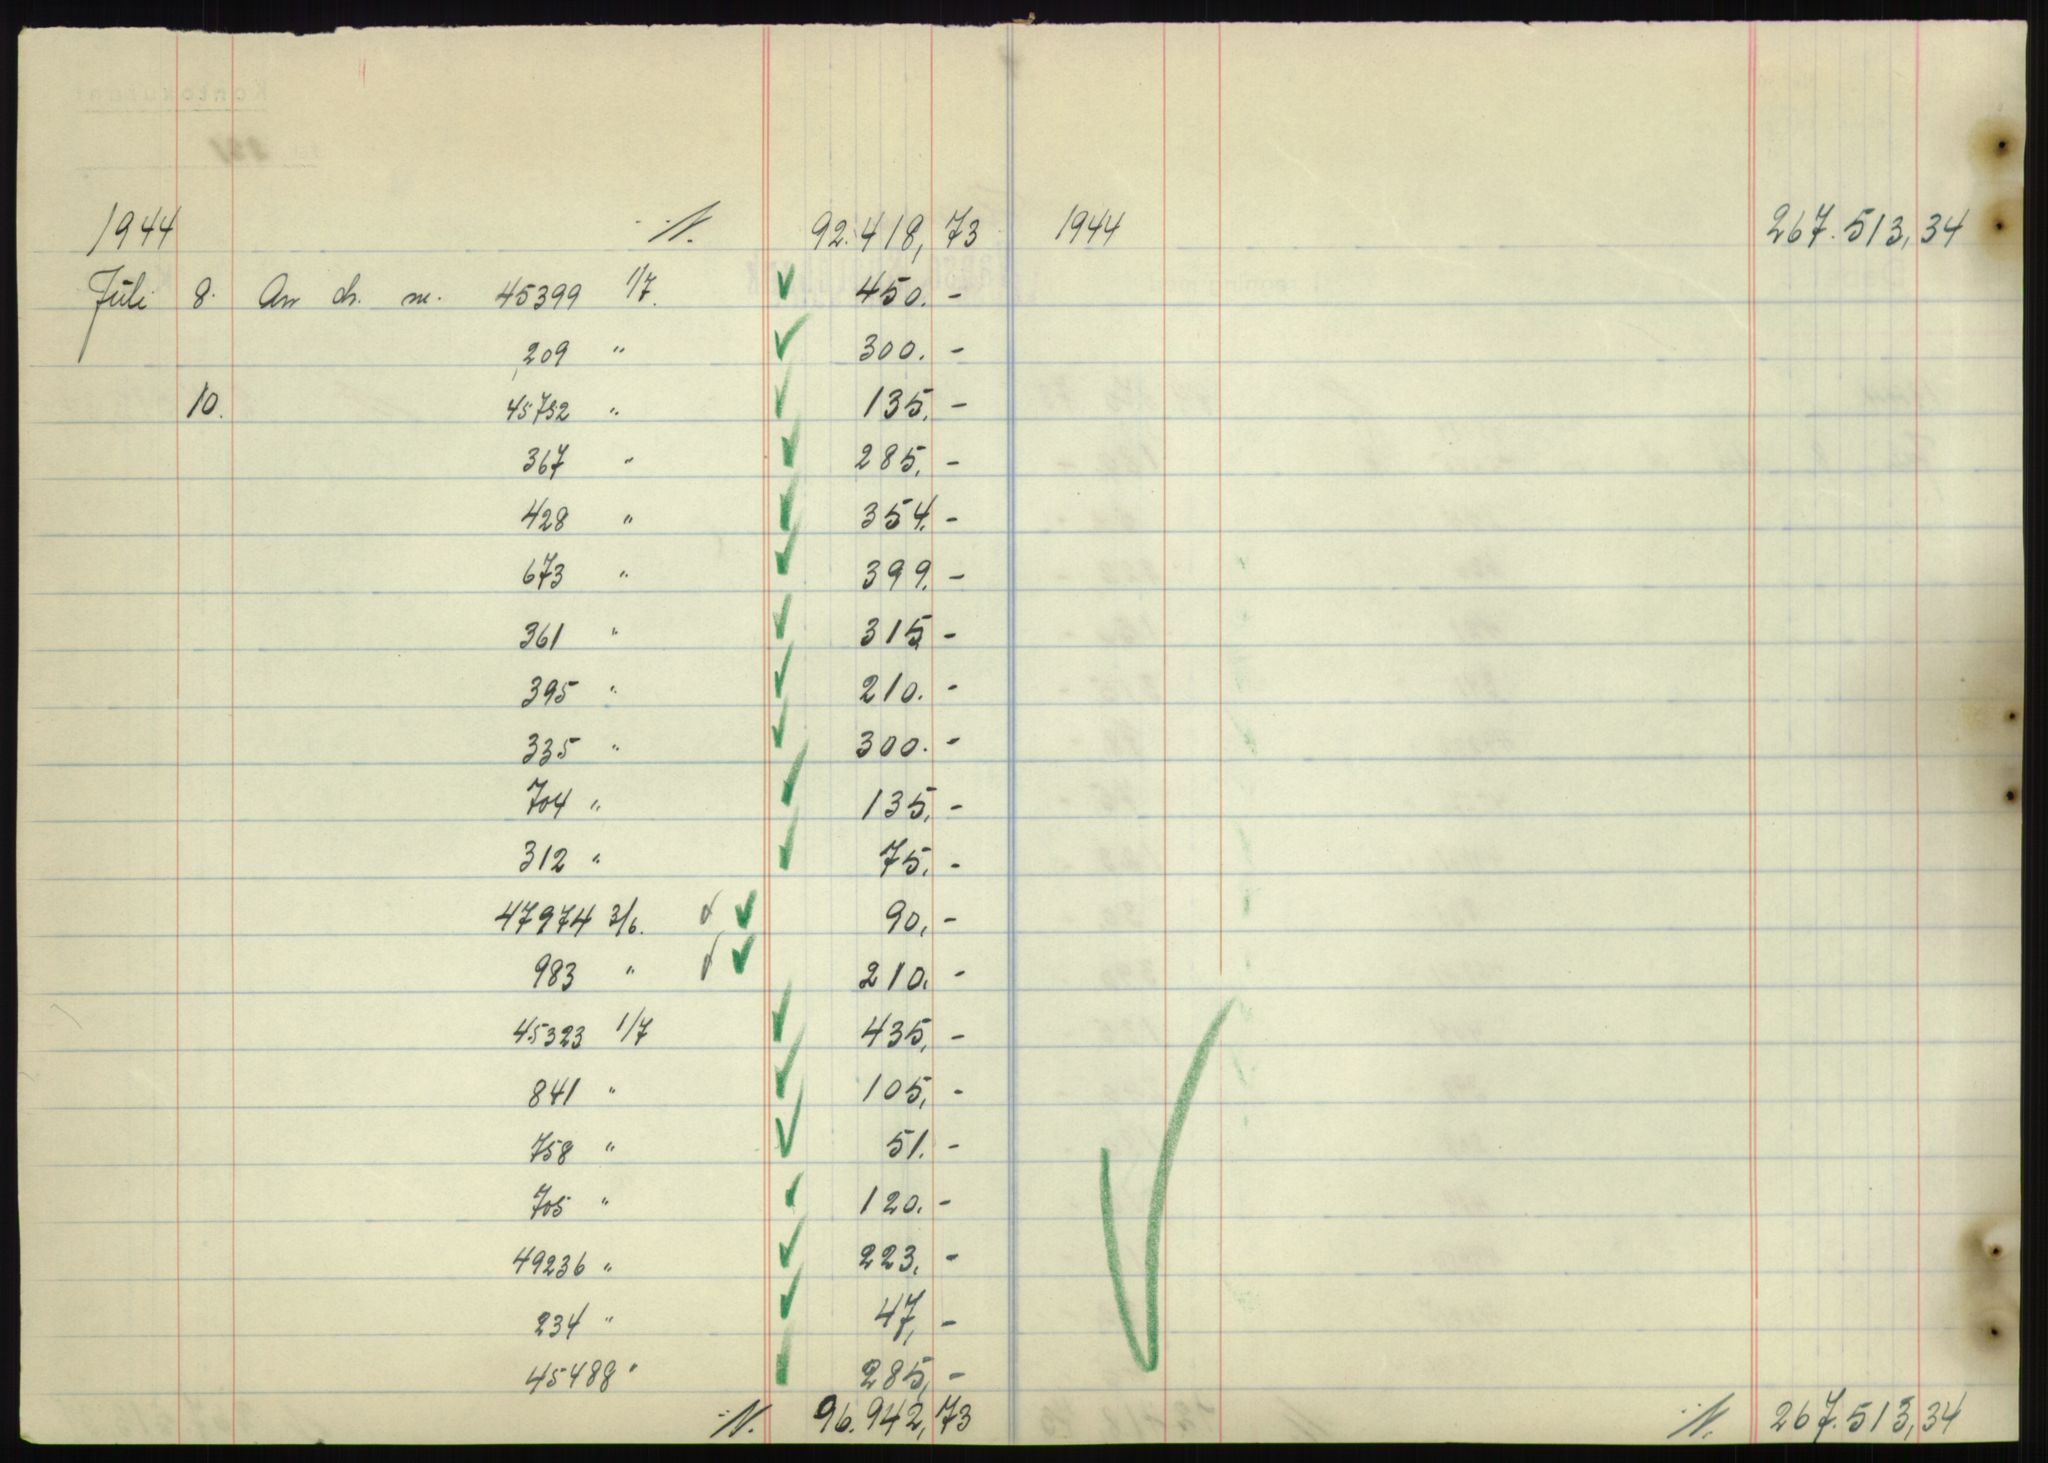 1944 ·/. 92.418,73 1944 267.513,34
Juli 8. An ch. nr. 45399 1/7. 450.-
209 " 300.-
10. 45752 " 135.-
367 " 285.-
428 " 354.-
673 " 399.-
361 " 315 -
395 " 210.-
335 " 300.-
704 " 135.-
312 " 75.-
47974 3/6. 90,-
983 " 210.-
45323 1/7 435,-
841 " 105,-
758 " 51.-
705 " 120.-
49236 " 223.-
234 " 47,-
45488 " 285,-
96.942,73 267.513,34